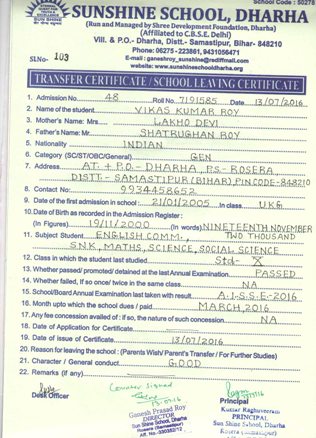 School Code : 50278
SUNSHINE SCHOOL, DHARHA
(Run and Managed by Shree Development Foundation, Dharha)
(Affiliated to C.B.S.E. Delhi)
SUN SHINE
Vill. & P.O.- Dharha, Distt.- Samastipur, Bihar- 848210
Phone: 06275 - 223861, 9431056471
E-mail : ganeshroy_sunshine@rediffmail.com
SLNo- 103
website: www.sunshineschooldharha.org
TRANSFER CERTIFICATE / SCHOOL LEAVING CERTIFICATE
1. Admission No. 48 Roll No. 7191585 Date 13/07/2016
2. Name of the student VIKAS KUMAR ROY
3. Mother's Name: Mrs. LAKHO DEVI
4. Father's Name: Mr. SHATRUGHAN ROY
5. Nationality INDIAN
6. Category (SC/ST/OBC/General) GEN
7. Address AT. + P.O. - DHARHA, P.S - ROSERA
DISTT - SAMASTIPUR (BIHAR) PIN CODE - 848210
8. Contact No: 9934458652
9. Date of the first admission in school : 21/01/2005 In class UKG
10. Date of Birth as recorded in the Admission Register :
(In Figures) 19/11/2000 (In words) NINETEENTH NOVEMBER
TWO THOUSAND
11. Subject Student ENGLISH COMM.,
S.N.K, MATHS, SCIENCE, SOCIAL SCIENCE
12. Class in which the student last studied Std- X
13. Whether passed/ promoted/ detained at the last Annual Examination PASSED
14. Whether failed, if so once/ twice in the same class NA
15. School/Board Annual Examination last taken with result A.I.S.S.E-2016
16. Month upto which the school dues / paid MARCH, 2016
17. Any fee concession availed of : if so, the nature of such concession NA
18. Date of Application for Certificate
19. Date of issue of Certificate 13/07/2016
20. Reason for leaving the school : (Parents Wish/ Parent's Transfer / For Further Studies)
21. Character / General conduct GOOD
22. Remarks (if any)
Counter Signed
Desk Officer
Principal
Ganesh Prasad Roy
DIRECTOR
Sun Shine School, Dharha
Rosera (Samastipur)
Aff. No.-330382/12
Kumar Raghuveeram
PRINCIPAL
Sun Shine School, Dharha
Rosera (Samastipur)